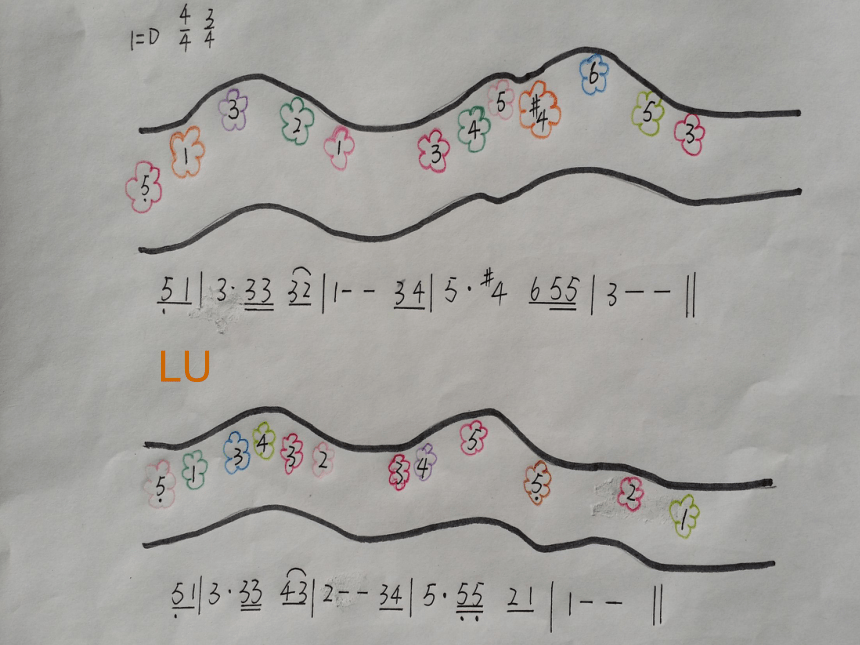 1=D 4/4 3/4
5̣ 1 3 2 1 3 4 5 #4 6 5 3
5̣ 1 | 3 · 3 3 3 2 | 1 - - 3 4 | 5 · #4 6 5 5 | 3 - - ||
LU
5̣ 1 3 4 3 2 3 4 5 5̣ 2 1
5̣ 1 | 3 · 3 3 4 3 | 2 - - 3 4 | 5 · 5̣ 5̣ 2 1 | 1 - - ||